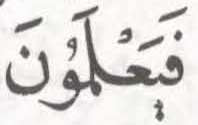 فَيَعْلَمُونَ